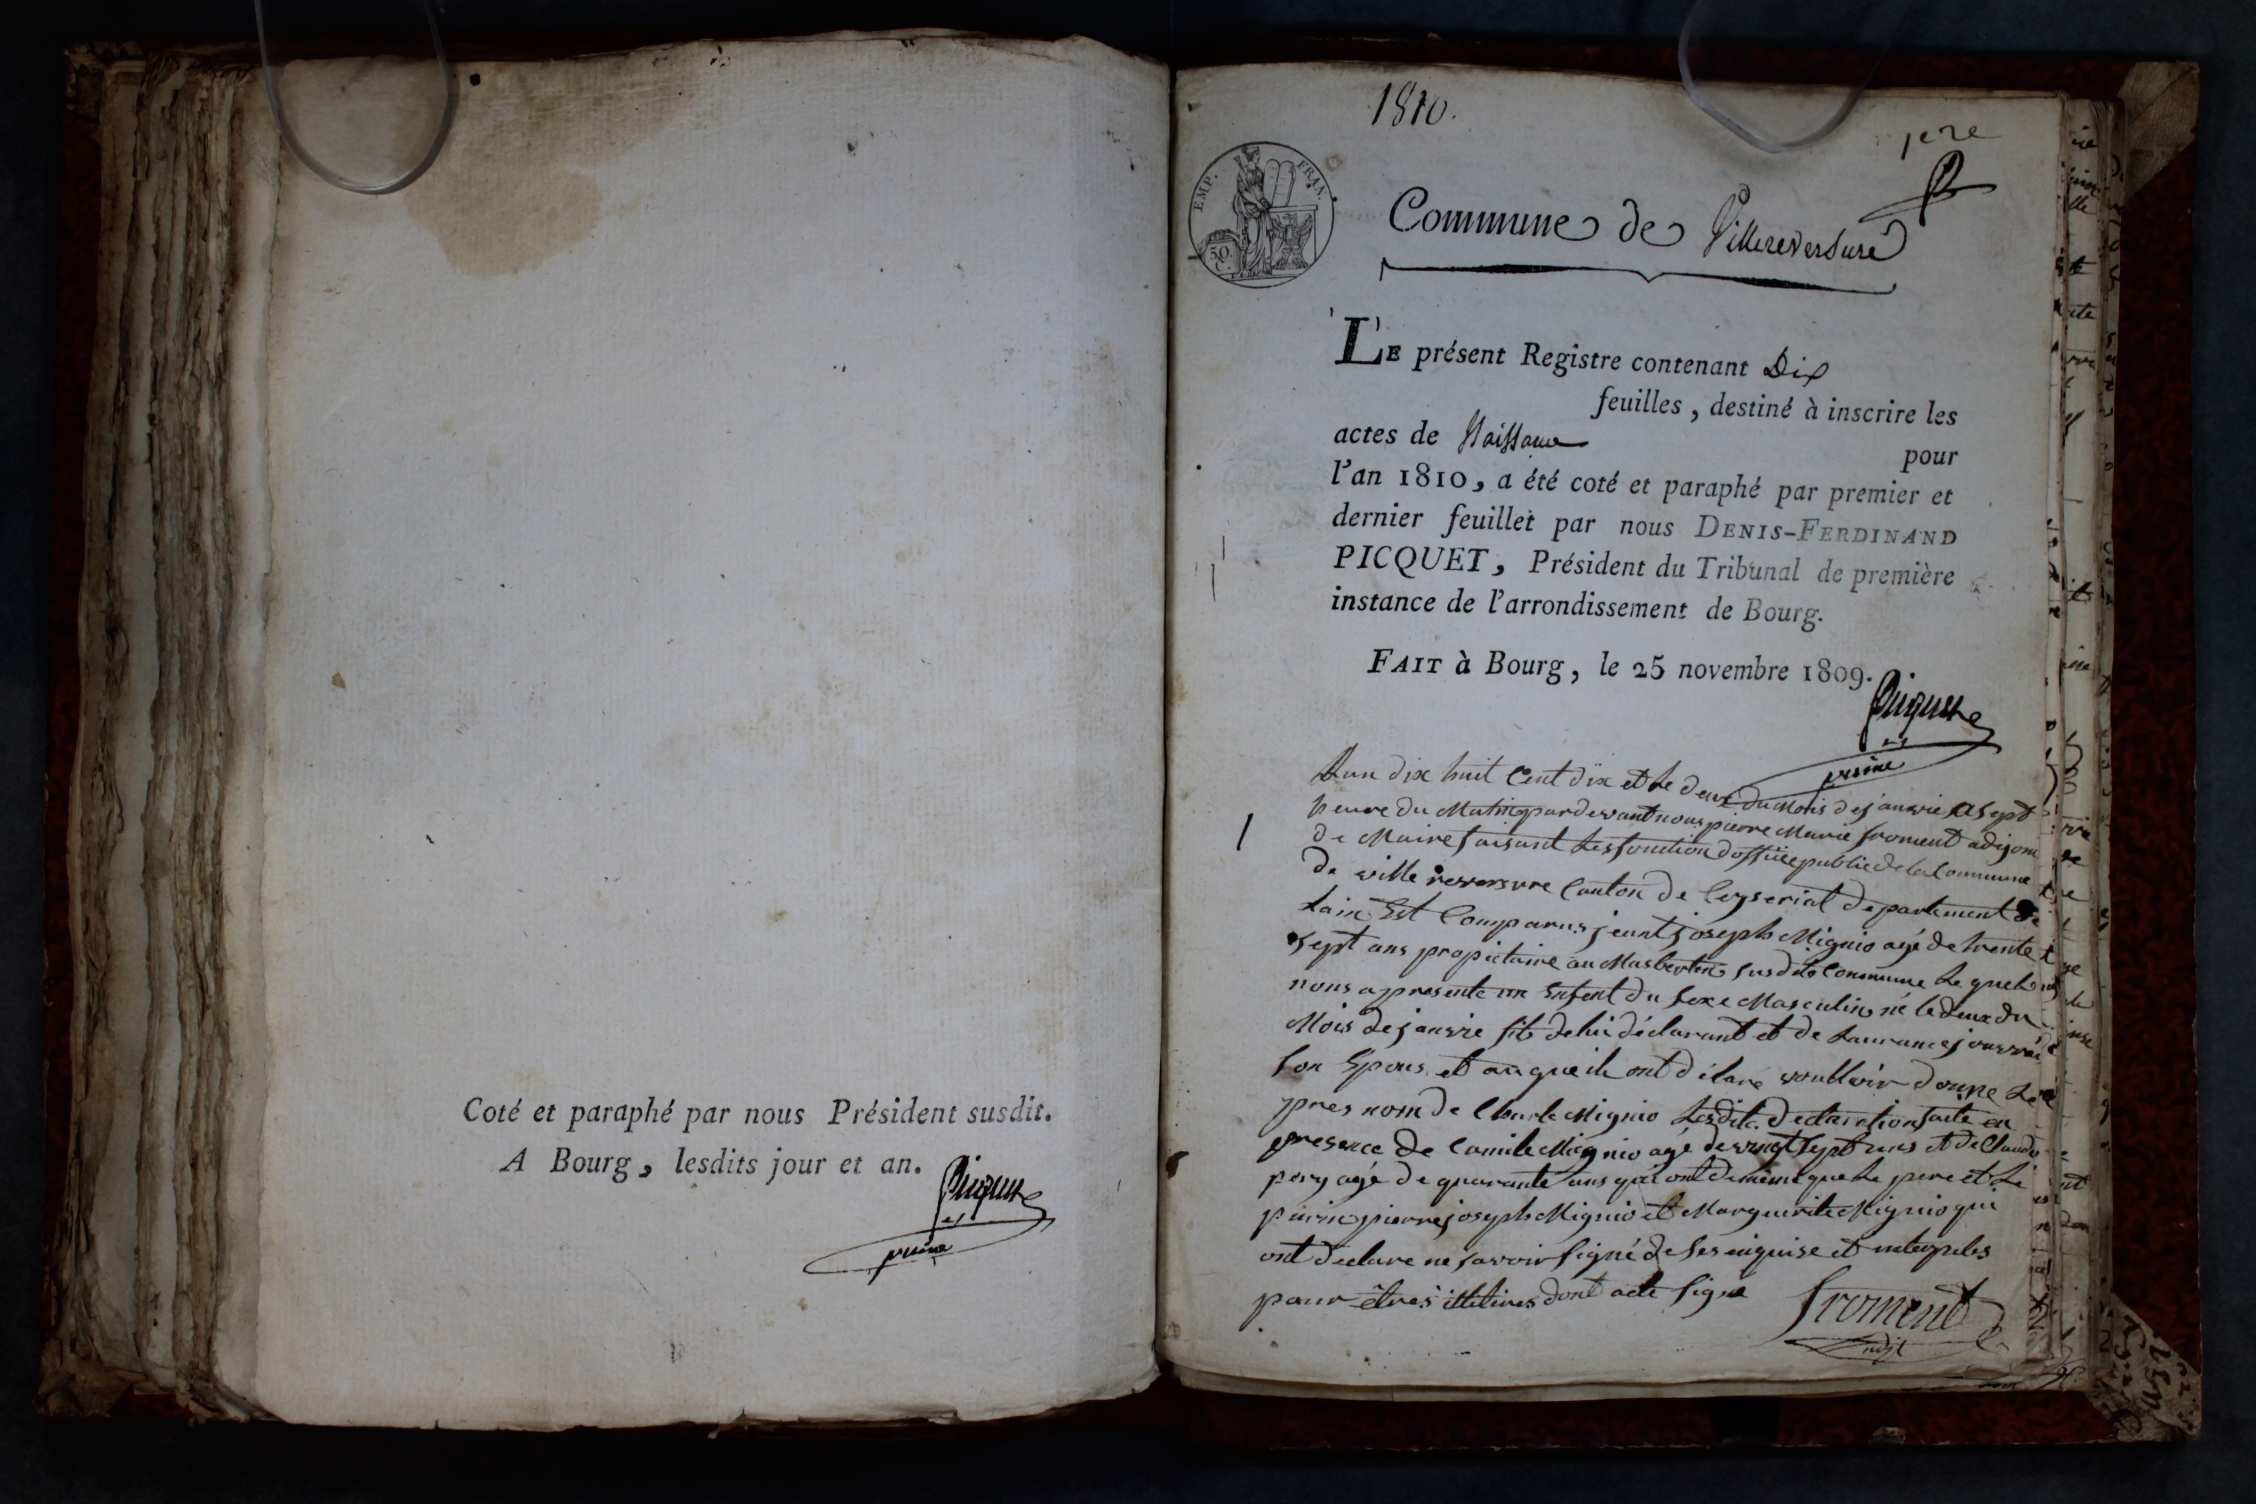 Coté et paraphé par nous Président susdit.
A Bourg, lesdits jour et an.
Picquet
1810.
1ere
EMP. FRAN.
50 C.
Commune de Villereversure
LE présent Registre contenant Dix
feuilles, destiné à inscrire les
actes de Naissance
pour
l'an 1810, a été coté et paraphé par premier et
dernier feuillet par nous DENIS-FERDINAND
PICQUET, Président du Tribunal de première
instance de l'arrondissement de Bourg.
FAIT à Bourg, le 25 novembre 1809.
Picquet
1
L'an dix huit Cent dix et le deux du Mois de janvie a sept
heure du Matin par devant nous pierre Marie froment adjoin
de Maire faisant les fonction d'office public de la Commune
de ville reversure Canton de Ceyseriat departement de
Lain Est Comparus jeant joseph Mignio agé de trente
sept ans propietaire au Masbertin susdite Commune Le quel
nous a presenté un Enfent du sexe Masculin né le deux du
Mois de janvie fils de lui déclarant et de Laurance
son Epous et au queil ont déclaré voulloir donne Le
pres nom de Charle Mignio Lesdite declairation faite en
presence de Camile Mignio agé de vingt sept ans et de Claude
pery agé de quarante ans qui ont de même que le pere et Le
parin pierre joseph Mignio et Marguerite Mignio qui
ont declare ne savoir signé de ses enquise et interpeles
pour êtres illetires dont acte signé
froment
adjt